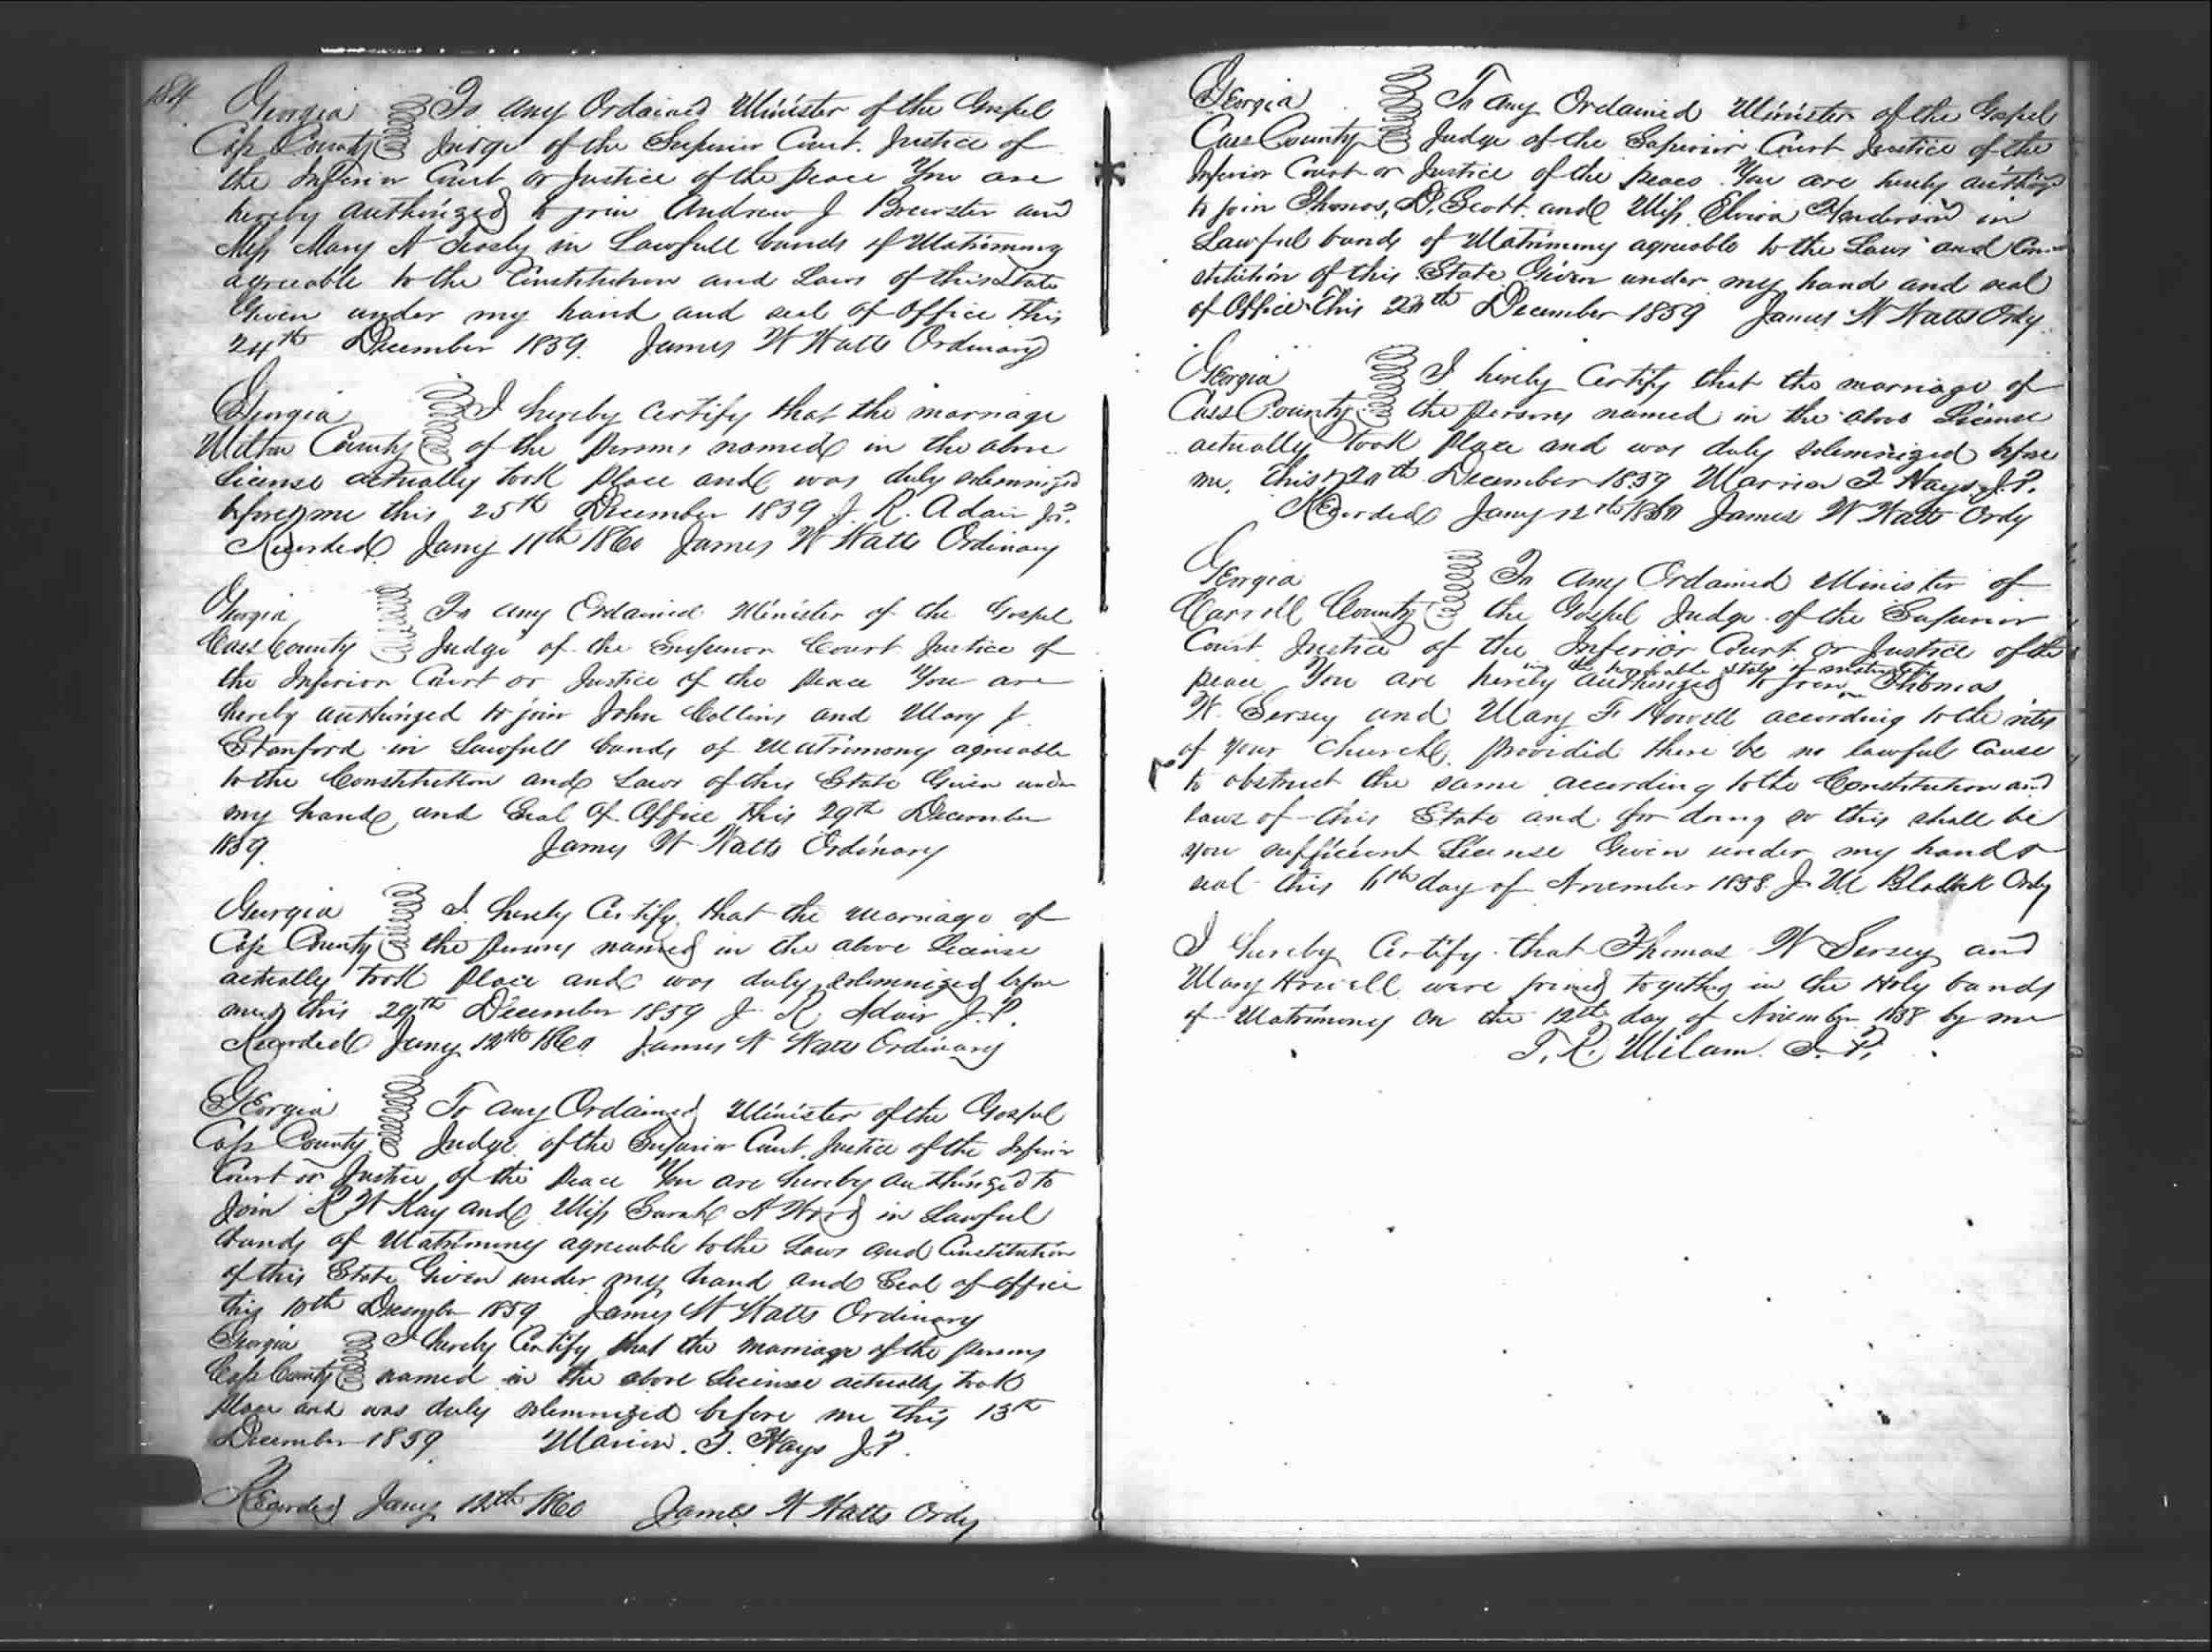 184
Georgia To any Ordained Minister of the Gospel
Cass County Judge of the Superior Court. Justice of
the Inferior Court or Justice of the peace You are
hereby authorized to join Andrew J Brewster and
Miss Mary A Crosby in Lawfull bands of Matrimony
agreeable to the Constitution and Laws of this State
Given under my hand and seal of office this
24th December 1859. James W Watts Ordinary
Georgia I hereby Certify that the marriage
Milton County of the persons named in the above
License actually took place and was duly solemnized
before me this 25th December 1859 J. R. Adair J.P.
Recorded Jany 11th 1860 James W Watts Ordinary
Georgia To any Ordained Minister of the Gospel
Cass County Judge of the Superior Court Justice of
the Inferior Court or Justice of the peace You are
hereby authorized to join John Collins and Mary J.
Stanford in Lawfull bands of Matrimony agreeable
to the Constitution and Laws of this State Given under
my hand and Seal of Office this 29th December
1859. James W Watts Ordinary
Georgia I hereby Certify that the marriage of
Cass County the persons named in the above License
actually took place and was duly solemnized before
me this 29th December 1859 J. R. Adair J.P.
Recorded Jany 12th 1860 James W Watts Ordinary
Georgia To any Ordained Minister of the Gospel
Cass County Judge of the Superior Court. Justice of the Inferior
Court or Justice of the peace You are hereby authorized to
Join R W Kay and Miss Sarah A Wood in Lawful
bands of Matrimony agreeable to the Laws and Constitution
of this State Given under my hand and Seal of office
this 10th December 1859 James W Watts Ordinary
Georgia I hereby Certify that the marriage of the persons
Cass County named in the above License actually took
place and was duly solemnized before me this 13th
December 1859. Marion. T. Hays J.P.
Recorded Jany 12th 1860 James W Watts Ordy
Georgia To any Ordained Minister of the Gospel
Cass County Judge of the Superior Court Justice of the
Inferior Court or Justice of the peace You are hereby
to join Thomas, D. Scott. and Miss Elvira Henderson in
Lawful bands of Matrimony agreeable to the Laws and Con-
stitution of this State Given under my hand and seal
of Office This December 1859 James W Watts Ordy.
Georgia I hereby Certify that the marriage of
Cass County the persons named in the above License
actually took place and was duly solemnized before
me. this December 1859 Marion T Hays J.P.
Recorded Jany 12th 1860 James W Watts Ordy
Georgia To any Ordained Minister of
Carroll County the Gospel Judge of the Superior
Court Justice of the Inferior Court or Justice of the
in the honorable state of matrimony
peace You are hereby authorized to join Thomas
W. Sersey and Mary F. Howell according to the rites
of your church. provided there be no lawful cause
to obstruct the same according to the Constitution and
laws of this State and for doing so this shall be
you sufficient License Given under my hand &
seal this 6th day of November 1858. J. M Ordy
I hereby Certify that Thomas W Sersey and
Mary Howell were joined together in the Holy bands
of Matrimony on the 12th day of November 1858 by me
T. R. Milam. J. P.